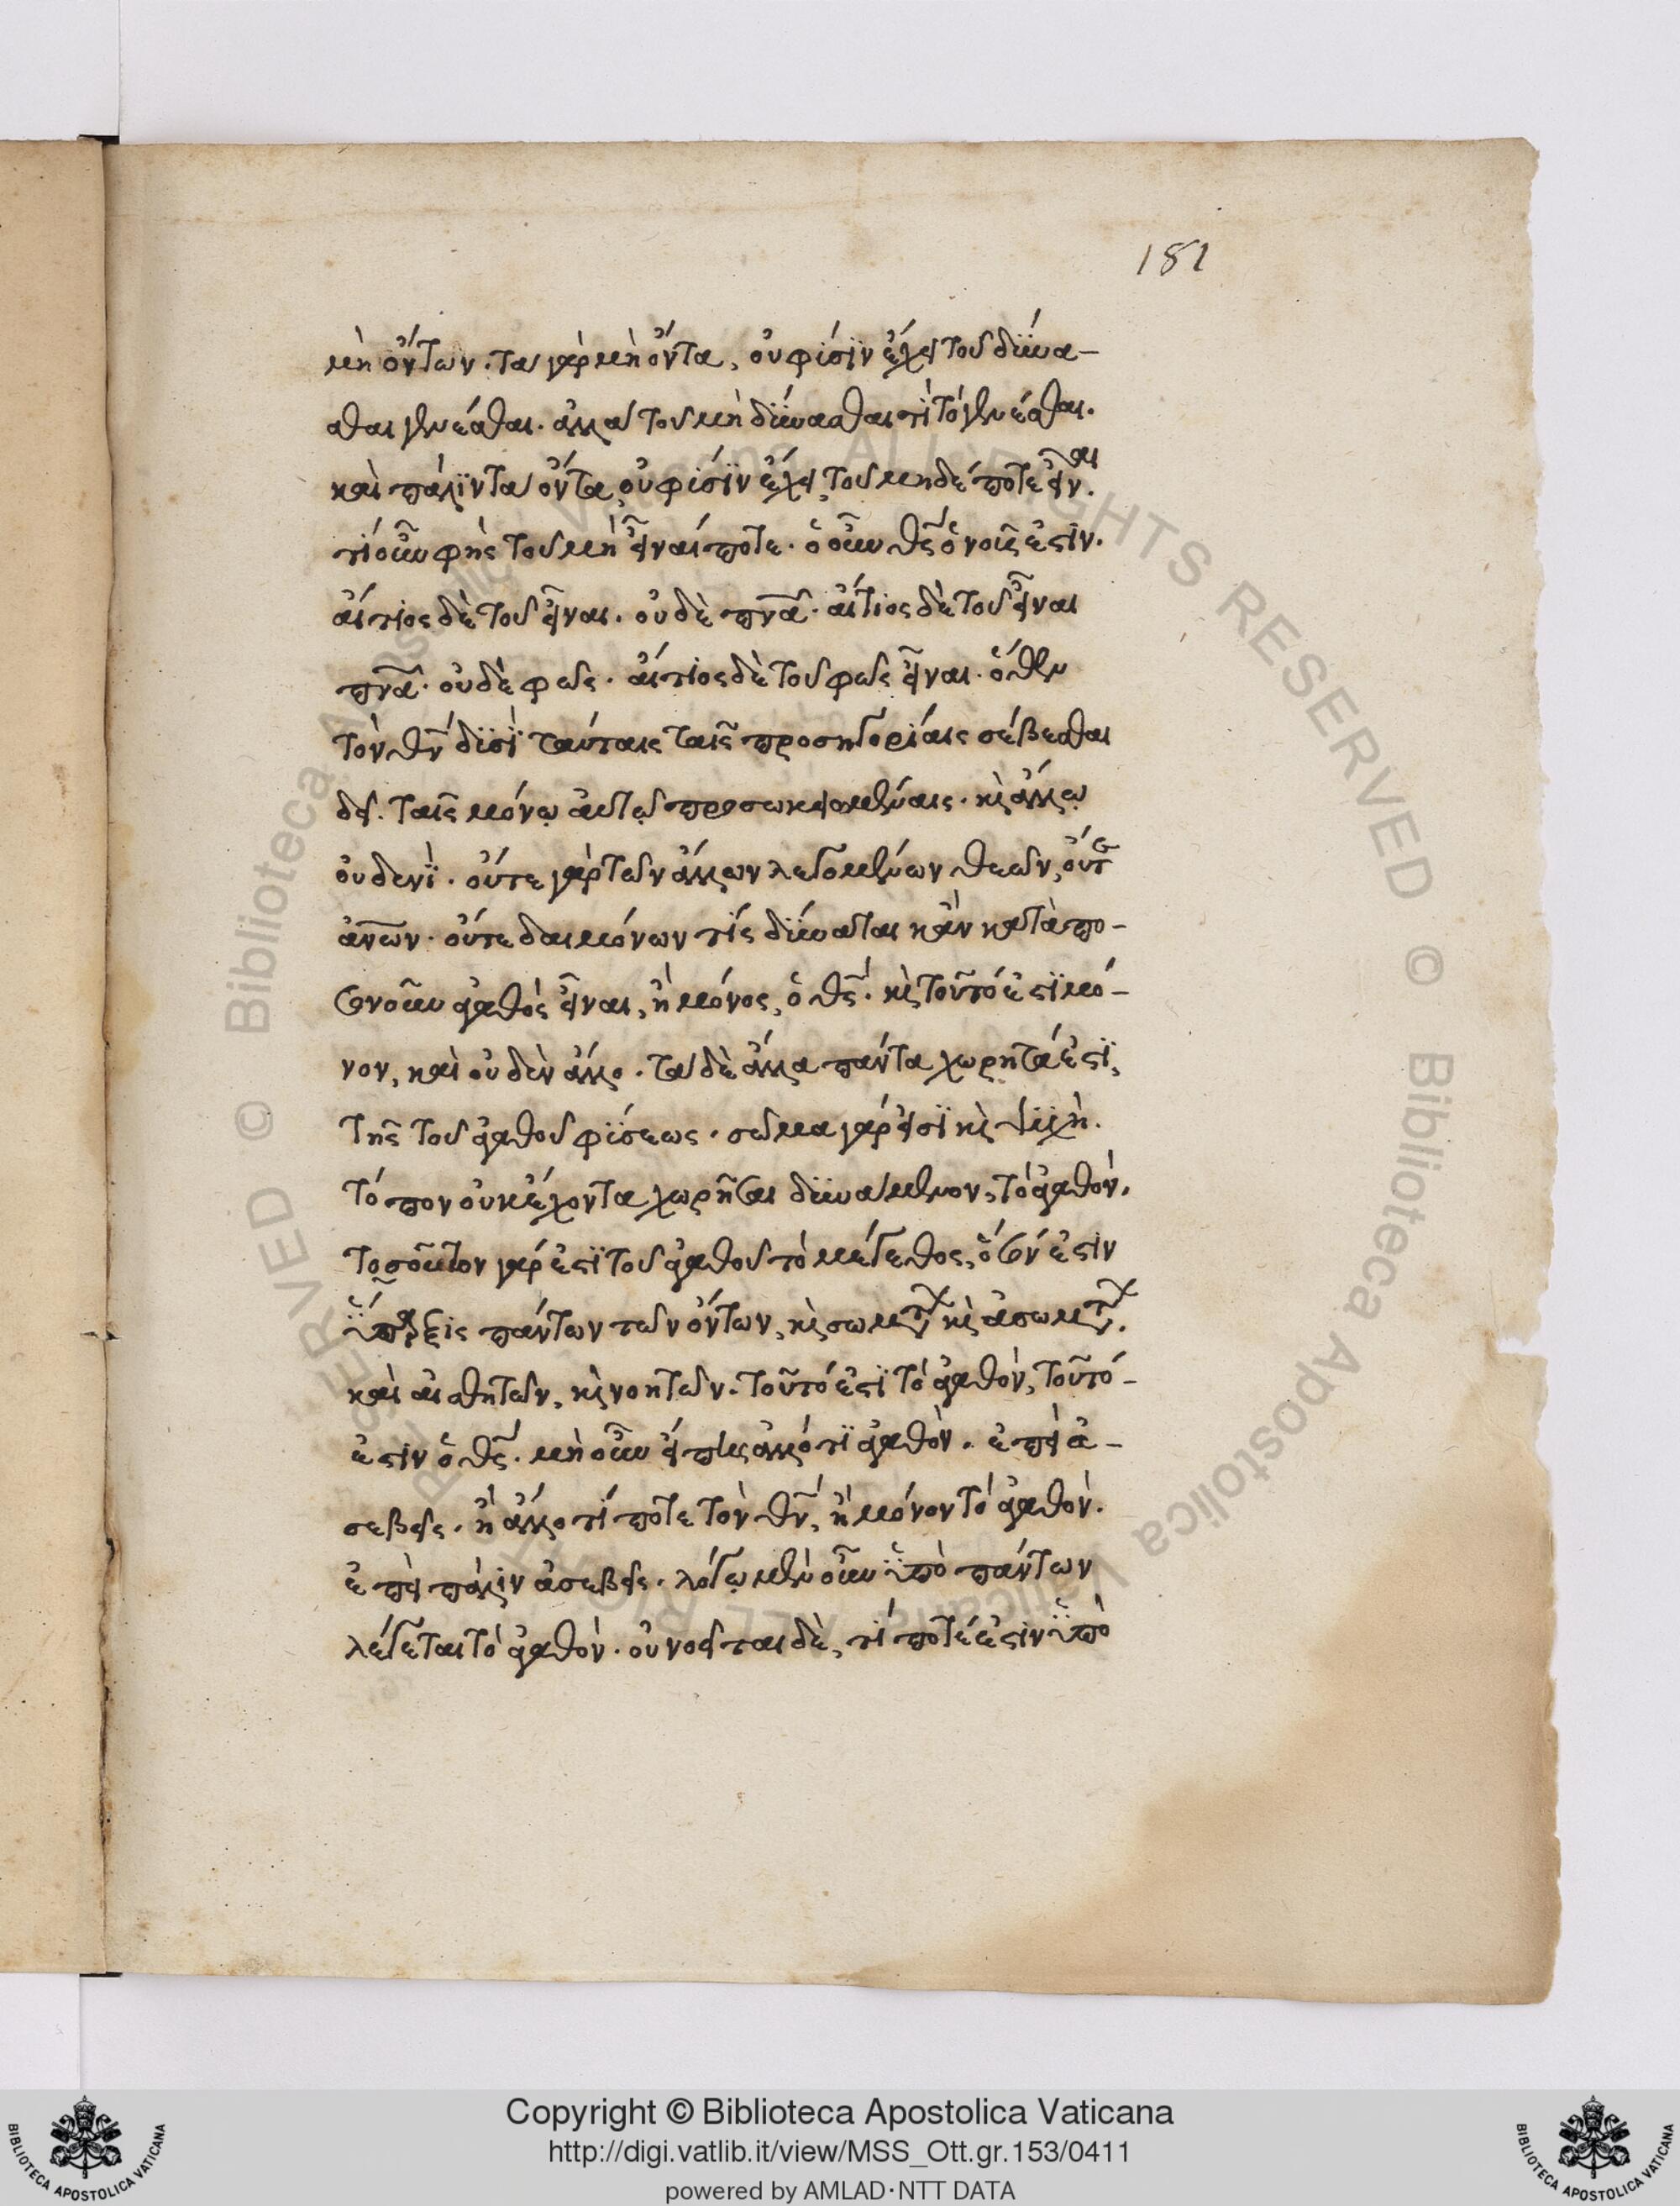 181
μὴ ὄντων. τὰ γὰρ μὴ ὄντα, οὐ φύσιν ἔχει τοῦ δύνα-
σθαι γενέσθαι. ἀλλὰ τοῦ μὴ δύνασθαι τὶ τὸ γενέσθαι.
καὶ πάλιν τὰ ὄντα, οὐ φύσιν ἔχει, τοῦ μηδέποτε εἶναι.
τί οὖν φὴς τοῦ μὴ εἶναί ποτε. ὁ οὖν θς̄ ὁ νοῦς ἐστιν.
αἴτιος δὲ τοῦ εἶναι. οὐδὲ πνᾶ. αἴτιος δὲ τοῦ εἶναι
πνᾶ. οὐδὲ φῶς. αἴτιος δὲ τοῦ φῶς εἶναι. ὅθεν
τὸν θν̄ δυσὶ ταύταις ταῖς προσηγορίαις σέβεσθαι
δεῖ. ταῖς μόνῳ αὐτῷ προσωκειωμέναις. κὶ ἄλλῳ
οὐδενὶ. οὔτε γὰρ τῶν ἄλλων λεγομένων θεῶν, οὔτε
ἀν̄ων. οὔτε δαιμόνων τίς δύναται κἂν κατὰ πο-
σονοῦν ἀγαθὸς εἶναι, ἢ μόνος, ὁ θς̄. κὶ τοῦτό ἐστι μό-
νον, καὶ οὐδὲν ἄλλο. τὰ δὲ ἄλλα πάντα χωρητά ἐστι,
τῆς τοῦ ἀγαθοῦ φύσεως. σῶμα γάρ εἰσι κὶ ψυχὴ.
τόπον οὐκ ἔχοντα χωρῆσαι δυνάμενον, τὸ ἀγαθόν.
τοσοῦτον γάρ ἐστι τοῦ ἀγαθοῦ τὸ μέγεθος, ὅσόν ἐστιν
ὕπαρξις πάντων τῶν ὄντων, κὶ σωμάτων κὶ ἀσωμάτων.
καὶ αἰσθητῶν, κὶ νοητῶν. τοῦτό ἐστι τὸ ἀγαθόν, τοῦτό-
ἐστιν ὁ θς̄. μὴ οὖν εἴπῃς ἄλλό τι ἀγαθὸν. ἐπεὶ ἀ-
σεβεῖς. ἢ ἄλλο τί ποτε τὸν θν̄, ἢ μόνον τὸ ἀγαθὸν.
ἐπεὶ πάλιν ἀσεβεῖς. λόγῳ μὲν οὖν ὑπὸ πάντων
λέγεται τὸ ἀγαθὸν. οὐ νοεῖται δὲ, τί ποτέ ἐστιν ὑπὸ
Copyright © Biblioteca Apostolica Vaticana
http://digi.vatlib.it/view/MSS_Ott.gr.153/0411
powered by AMLAD·NTT DATA